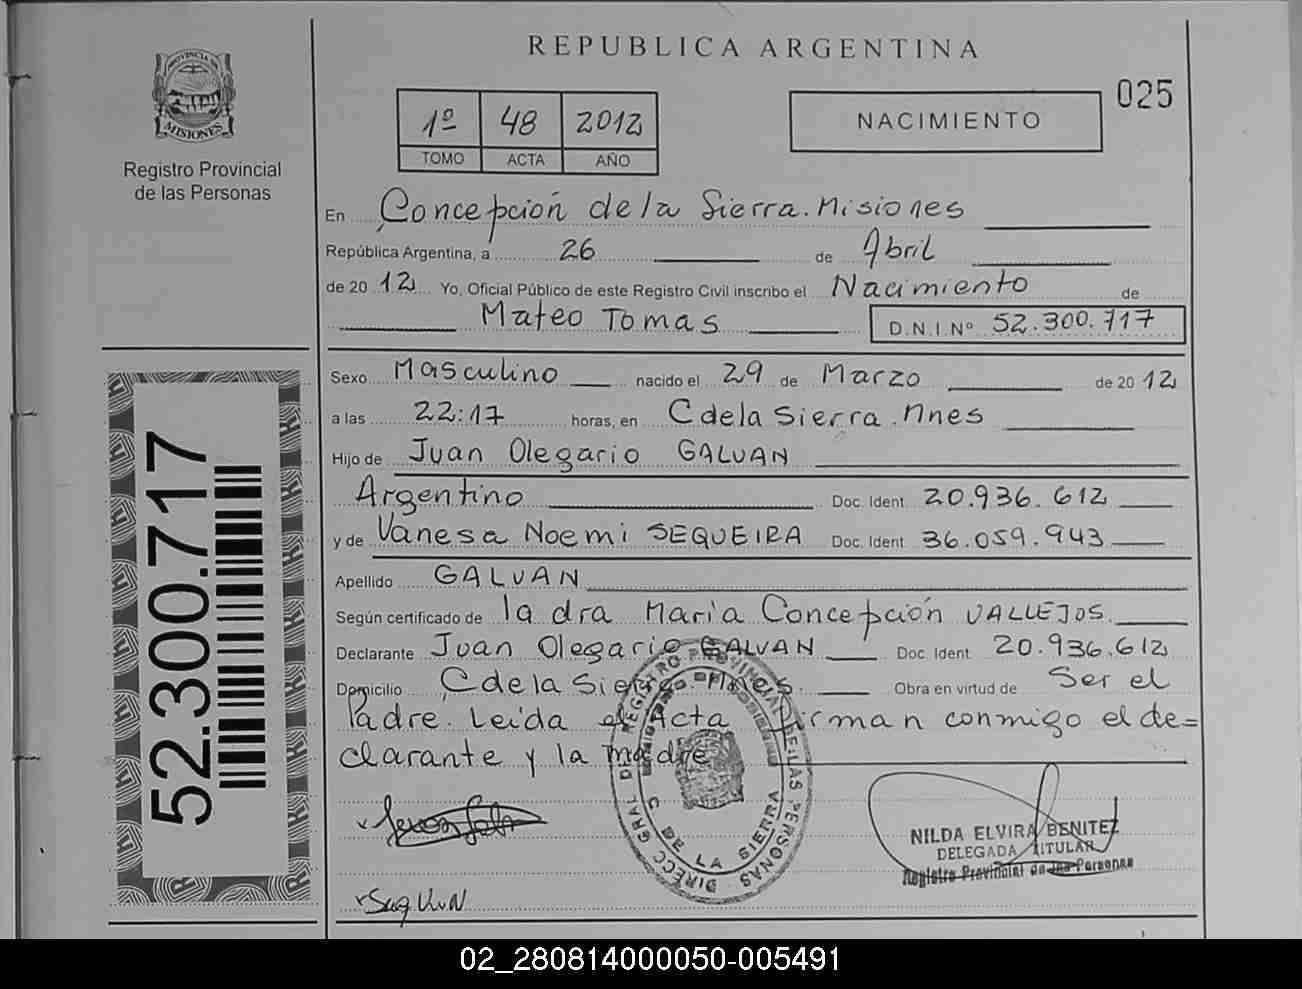 REPUBLICA ARGENTINA
PROVINCIA DE
MISIONES
Registro Provincial
de las Personas
1º 48 2012
TOMO ACTA AÑO
NACIMIENTO
025
En Concepción de la Sierra. Misiones
República Argentina, a 26 de Abril
de 2012 Yo, Oficial Público de este Registro Civil inscribo el Nacimiento de
Mateo Tomas D.N.I. Nº 52.300.717
Sexo Masculino nacido el 29 de Marzo de 2012
a las 22:17 horas, en C de la Sierra. Mnes
Hijo de Juan Olegario GALVAN
Argentino Doc. Ident 20.936.612
y de Vanesa Noemi SEQUEIRA Doc. Ident 36.059.943
Apellido GALVAN
Según certificado de la dra Maria Concepción VALLEJOS.
Declarante Juan Olegario GALVAN Doc. Ident 20.936.612
Domicilio C de la Sierra. Mnes. Obra en virtud de Ser el
Padre. Leida el Acta firman conmigo el de=
clarante y la madre
52.300.717
DIRECC GRAL DE REGISTRO PROVINCIAL DE LAS PERSONAS
DE LA SIERRA
NILDA ELVIRA BENITEZ
DELEGADA TITULAR
Registro Provincial de las Personas
02_280814000050-005491